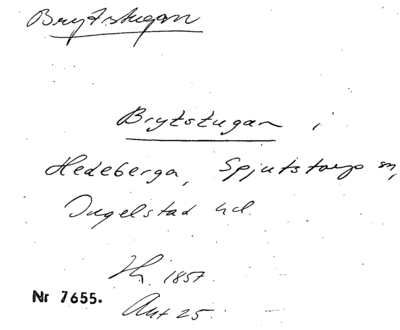 Brytstugan
Brytstugan i
Hedeberga, Spjutstorp sn,
Ingelstad hd.
1857
Nr 7655.
Ant 25.